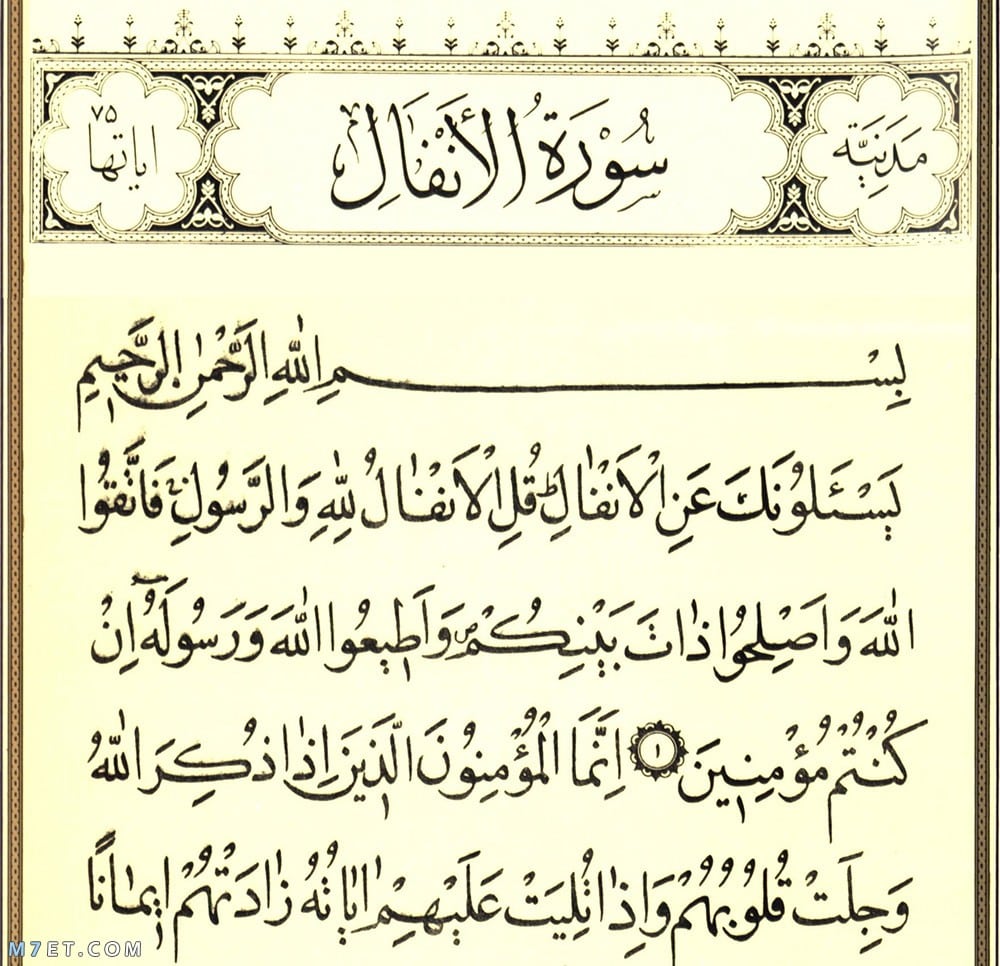 مَدَنِيَّة
سُوْرَةُ الْأَنْفَالِ
٧٥
اياتها
بِسْمِ اللّٰهِ الرَّحْمٰنِ الرَّحٖيمِ
يَسْـَٔلُونَكَ عَنِ الْاَنْفَالِؕ قُلِ الْاَنْفَالُ لِلّٰهِ وَالرَّسُولِۚ فَاتَّقُوا
اللّٰهَ وَاَصْلِحُوا ذَاتَ بَيْنِكُمْࣕ وَاَطٖيعُوا اللّٰهَ وَرَسُولَهُٓ اِنْ
كُنْتُمْ مُؤْمِنٖينَ ١ اِنَّمَا الْمُؤْمِنُونَ الَّذٖينَ اِذَا ذُكِرَ اللّٰهُ
وَجِلَتْ قُلُوبُهُمْ وَاِذَا تُلِيَتْ عَلَيْهِمْ اٰيَاتُهُ زَادَتْهُمْ اٖيمَانًا
M7ET.COM